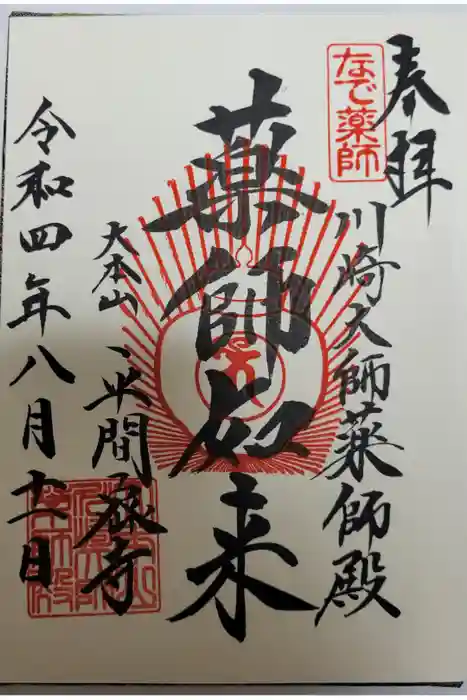 奉拝
なで薬師
川崎大師薬師殿
薬師如来
大本山
平間寺
令和四年八月十一日